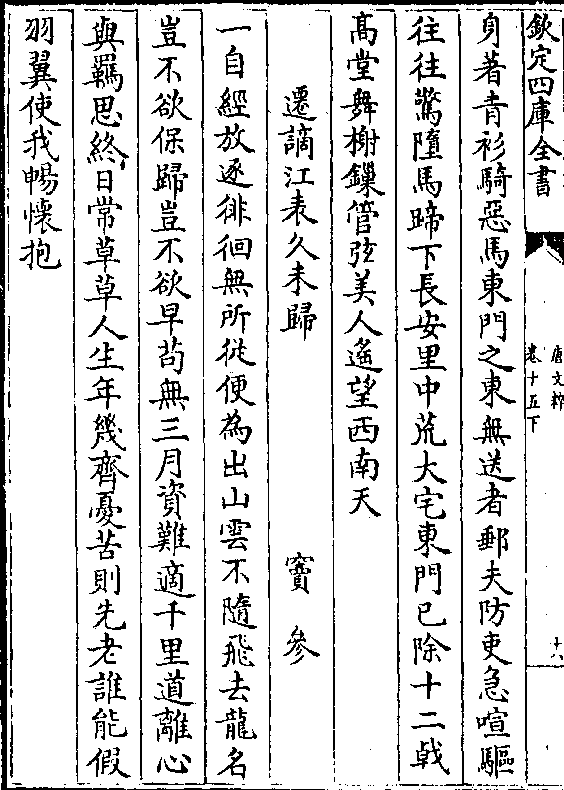 欽定四庫全書
唐文粹
卷十五下
十八
身著青衫騎惡馬東門之東無送者郵夫防吏急喧驅
往往驚墮馬蹄下長安里中荒大宅東門已除十二戟
高堂舞榭鏁管弦美人遙望西南天
遷謫江表久未歸
竇參
一自經放逐徘徊無所從便為出山雲不隨飛去龍名
豈不欲保歸豈不欲早苟無三月資難適千里道離心
與羈思終日常草草人生年幾齊憂苦則先老誰能假
羽翼使我暢懷抱